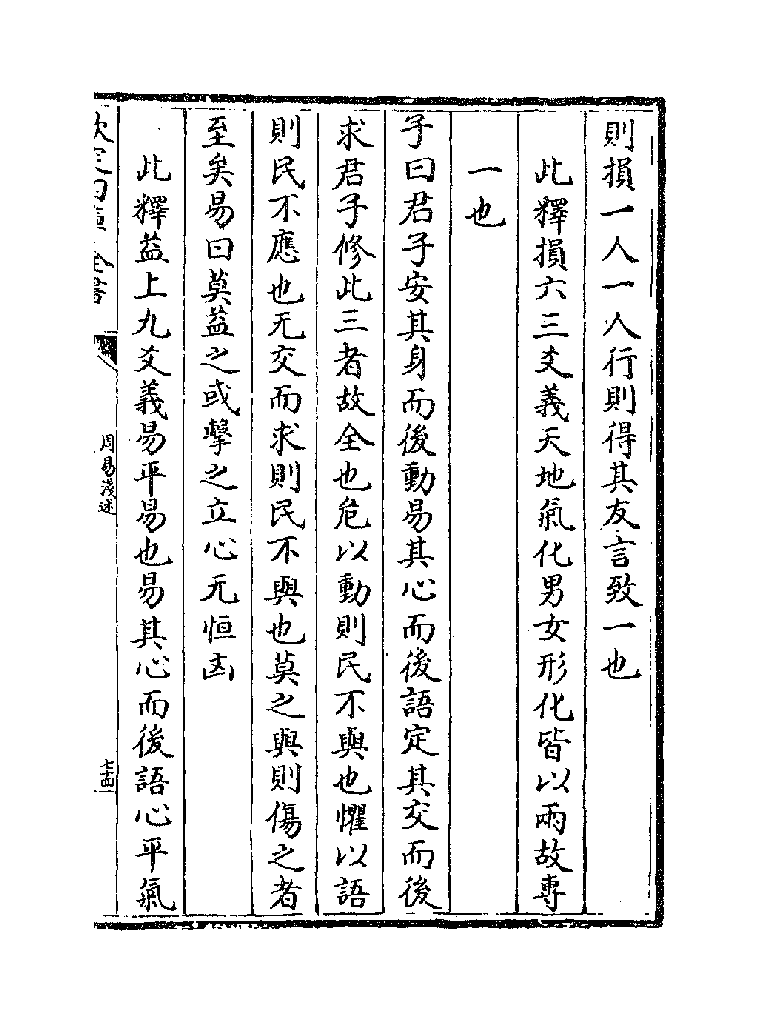 則損一人一人行則得其友言致一也
此釋損六三爻義天地氣化男女形化皆以兩故專
一也
子曰君子安其身而後動易其心而後語定其交而後
求君子修此三者故全也危以動則民不與也懼以語
則民不應也无交而求則民不與也莫之與則傷之者
至矣易曰莫益之或擊之立心无恒凶
此釋益上九爻義易平易也易其心而後語心平氣
欽定四庫全書
周易淺述
七十四